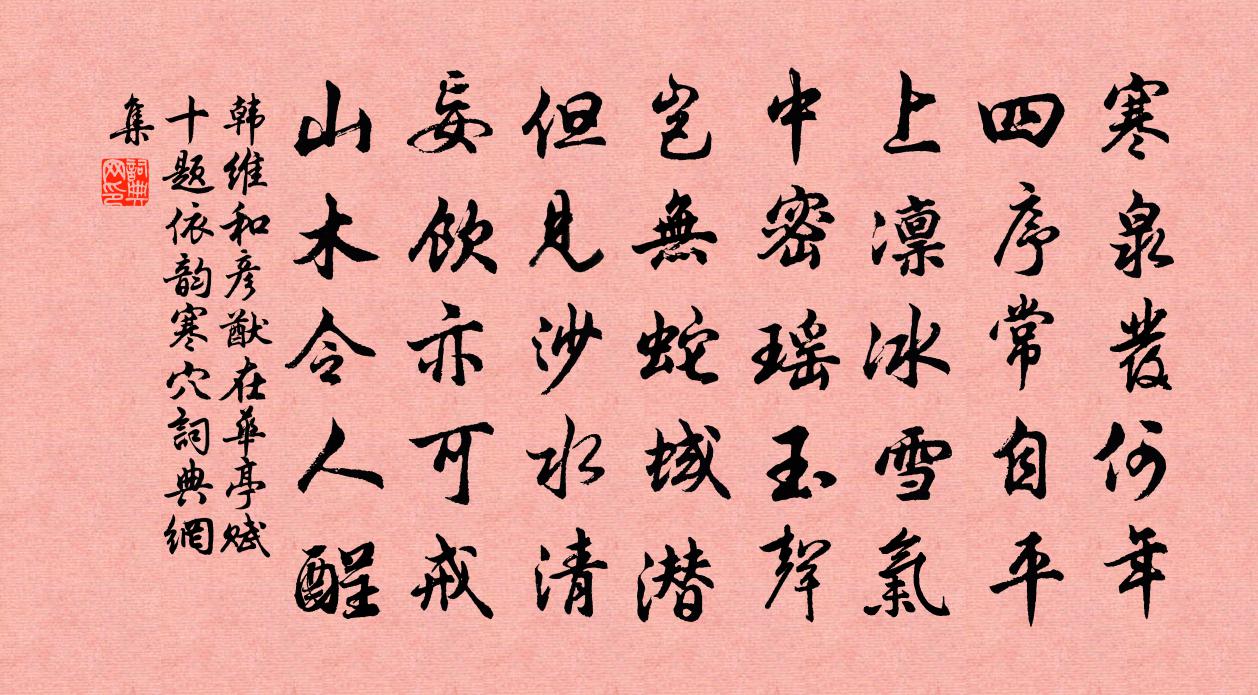 寒泉發何年
四序常自平
上凜冰雪氣
中密瑶玉聲
豈無蛇蜮潜
但見沙水清
妄飲亦可戒
山木令人醒
韩維和彦猷在華亭賦
十題依韵寒穴詞典網
集
詞典
网印